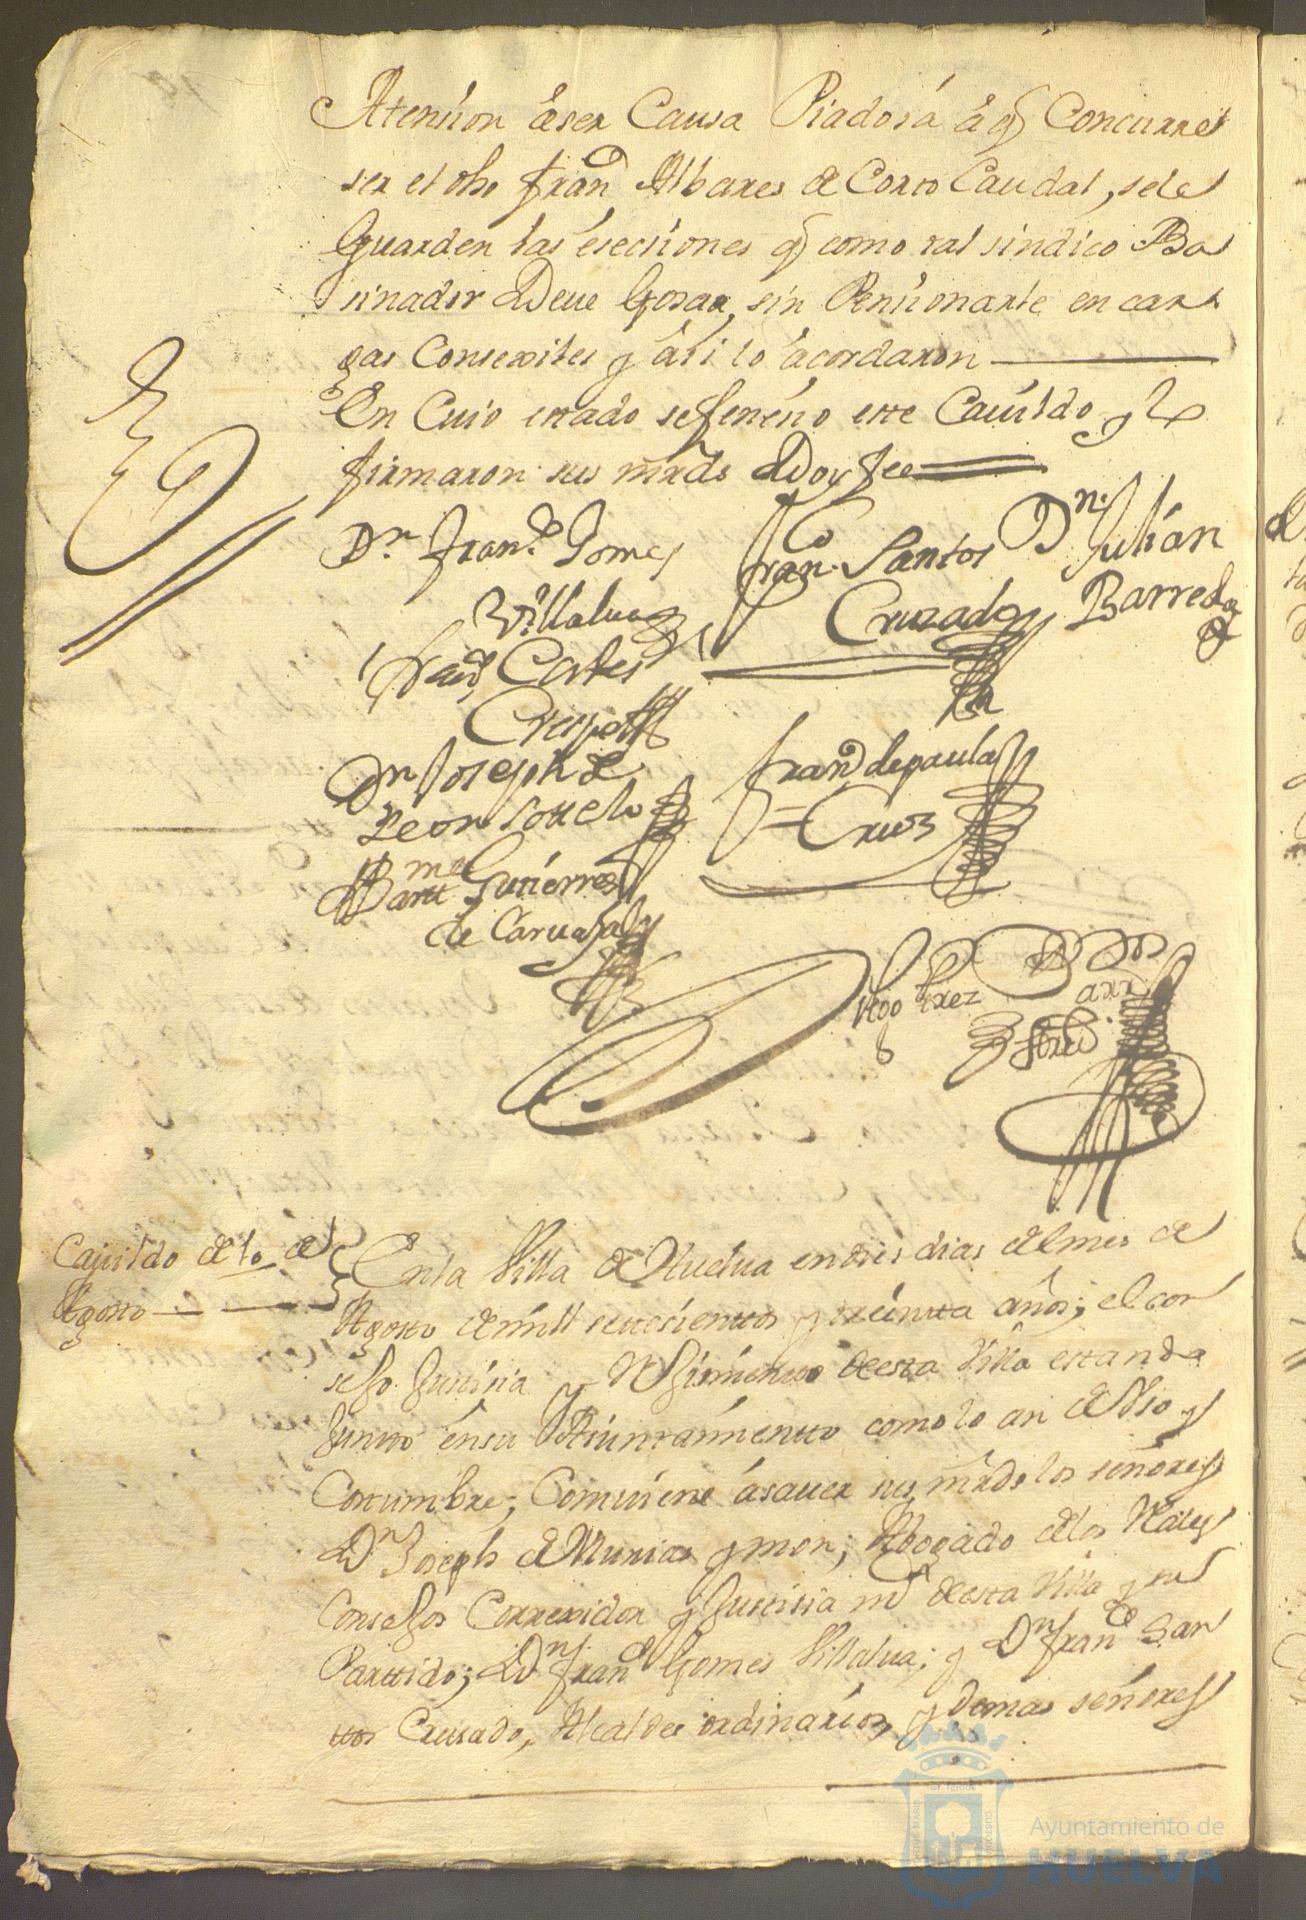 Atension á ser Causa Piadosa á q̃ Concurre
ser el dho fran.co Albares de Corto Caudal, se le
Guarden las eseciiones q̃ como tal sindico Ba
sinador Deue Gosar, sin Pensionarle en car
gas Conserxiles y ási lo ácordaron
En Cuio estado se feneció este Cauildo y lo
firmaron sus mrds Doy fee
Dn Fran.co Gomes
Villalua
Fran.co Santos
Cruzado
Dn. Julián
Barreda
Fran.co Cortes
Crespo
Dn Joseph de
Leon Sotelo
fran.co de paula
Cruz
Bartt.me Gutierres
de Caruajal
Cauildo de 10 de
Agosto
En la Villa de Huelua en dies dias del mes de
Agosto de mill settesienttos y treintta años; el con
sejo Justisia y Rejimientto de esta Villa estando
Juntto en su Aiuntamientto como lo an de Vso y
Costumbre; Comuiene ásauer sus mrds los señores
Dn Joseph de Munias y mon; Abogado de los Rales
Consejos Correxidor y Justisia mr de esta Villa y su
Parttido; Dn fran.co Gomes Villalua; y Dn fran.co San
ttos Crusado, Alcaldes ordinarios, y demas señores
Ayuntamiento de
HUELVA